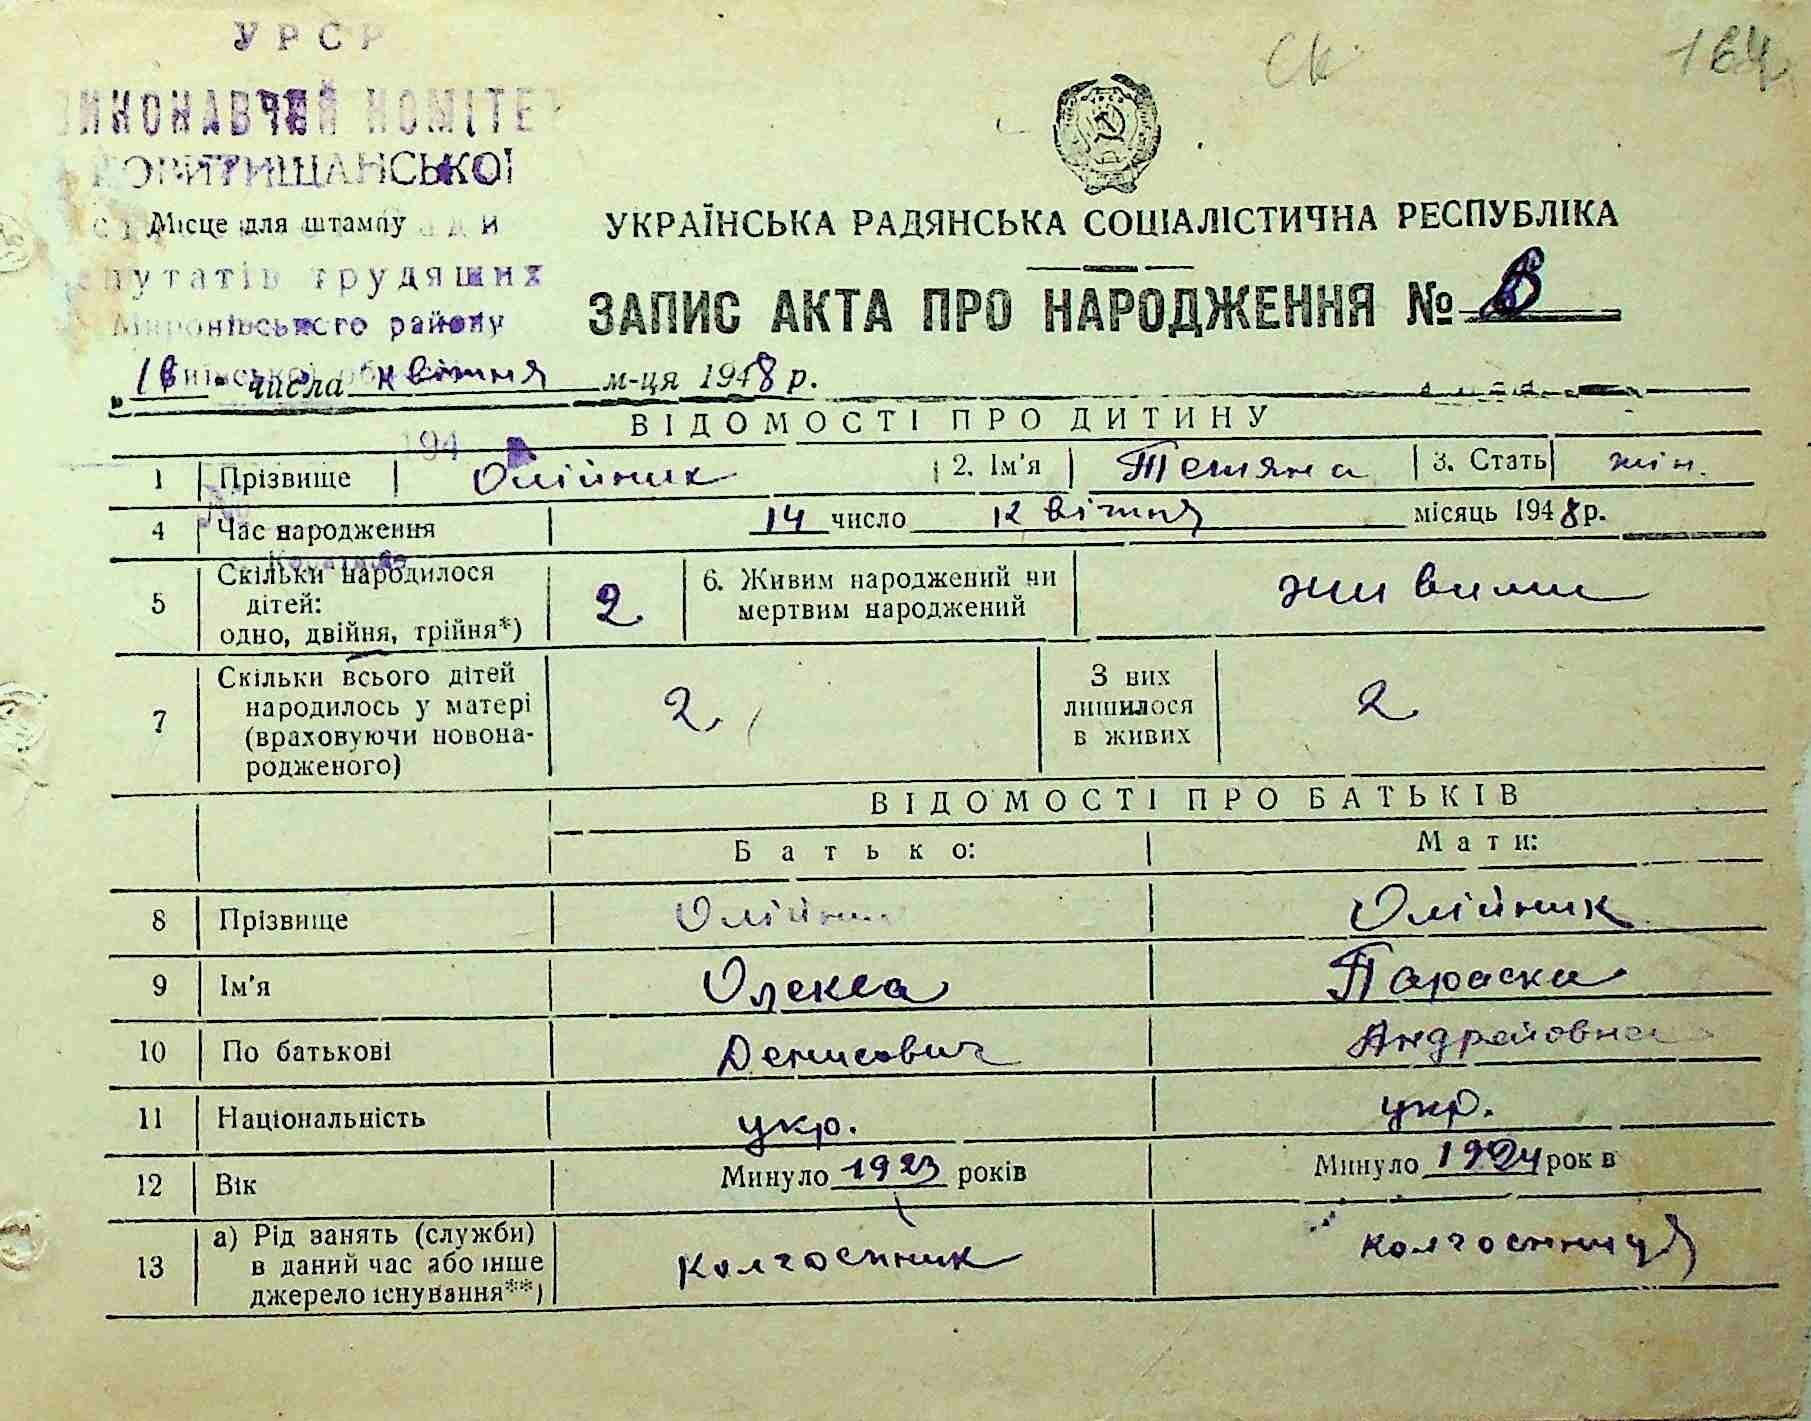 УРСР
ск.
164
ВИКОНАВЧИЙ КОМІТЕТ
КОРИТИЩАНСЬКОЇ
Місце для штампу
депутатів трудящих
Миронівського району
УКРАЇНСЬКА РАДЯНСЬКА СОЦІАЛІСТИЧНА РЕСПУБЛІКА
ЗАПИС АКТА ПРО НАРОДЖЕННЯ № 8
числа квітня м-ця 1948 р.
ВІДОМОСТІ ПРО ДИТИНУ
194
1 Прізвище Олійник 2. Ім'я Тетяна 3. Стать жін.
4 Час народження 14 число квітня місяць 1948 р.
5 Скільки народилося дітей: одно, двійня, трійня*) 2 6. Живим народжений чи мертвим народжений живими
7 Скільки всього дітей народилось у матері (враховуючи новонародженого) 2 З них лишилося в живих 2
ВІДОМОСТІ ПРО БАТЬКІВ
Батько: Мати:
8 Прізвище Олійник Олійник
9 Ім'я Олекса Параска
10 По батькові Денисович Андрейовна
11 Національність укр. укр.
12 Вік Минуло 1923 років Минуло 1924 рок в
13 а) Рід занять (служби) в даний час або інше джерело існування**) колгоспник колгоспниця